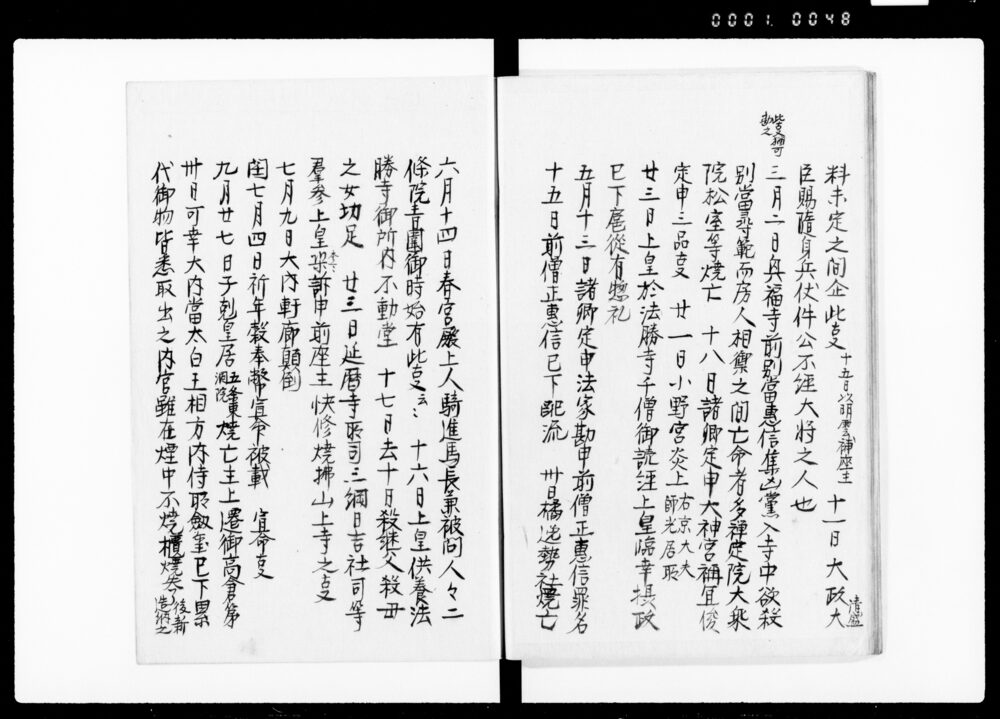 0001 0048
料未定之間企此事 十五日以明雲補座主 十一日大政大 清盛
臣賜隨身兵仗件公不經大將之人也
三月二日興福寺前別當惠信集凶黨入寺中欲殺
別當尋範而房人相禦之間亡命者多禅定院大乘
院松室等燒亡 十八日諸卿定申大神宮祢宜俊
定申三品事 廿一日小野宮炎上 右京大夫師光居所
廿三日上皇於法勝寺千僧御読経上皇臨幸摂政
已下扈從有惣礼
五月十三日諸卿定申法家勘申前僧正惠信罪名
十五日前僧正惠信已下配流 卅日橘逸勢社燒亡
六月十四日春宮殿上人騎進馬長兼被問人々二
條院青園御時始有此事云々 十六日上皇供養法
勝寺御所内不動堂 十七日去十日殺継父殺母
之女功足 廿三日延暦寺所司三綱日吉社司等
羣参上皇訴申前座主快修燒拂山上寺之事
七月九日大内軒廊顛倒
閏七月四日祈年穀奉幣宣命被載 宣命事
九月廿七日子剋皇居 五条東洞院 燒亡主上遷御高倉第
卅日可幸大内當太白王相方内侍所劔璽已下累
代御物皆悉取出之内宮雖在煙中不燒櫃燒了 後新造納之